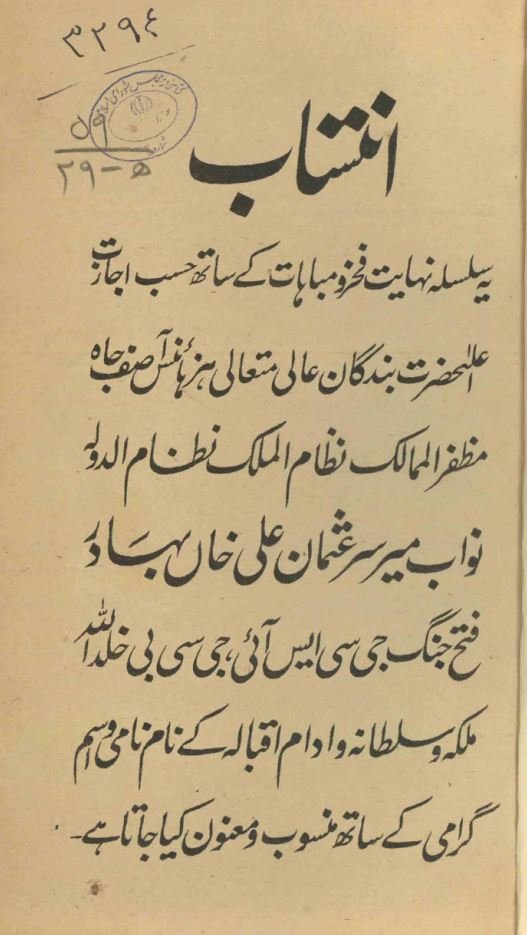 ٣٢٩٤
٢٩-٥
انتساب
یہ سلسلہ نہایت فخر و مباہات کے ساتھ حسب اجازت
اعلیٰحضرت بندگان عالی متعالی ہزہائنس آصف جاہ
مظفر الممالک نظام الملک نظام الدولہ
نواب میر سر عثمان علی خاں بہادر
فتح جنگ جی سی ایس آئی، جی سی بی خلد اللہ
ملکہ و سلطانہ وادام اقبالہ کے نام نامی و اسم
گرامی کے ساتھ منسوب و معنون کیا جاتا ہے۔